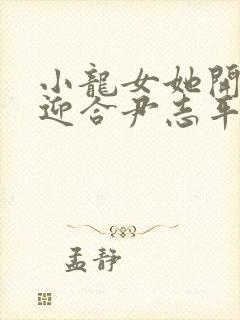 小龍女她開
迎合尹志平
孟靜